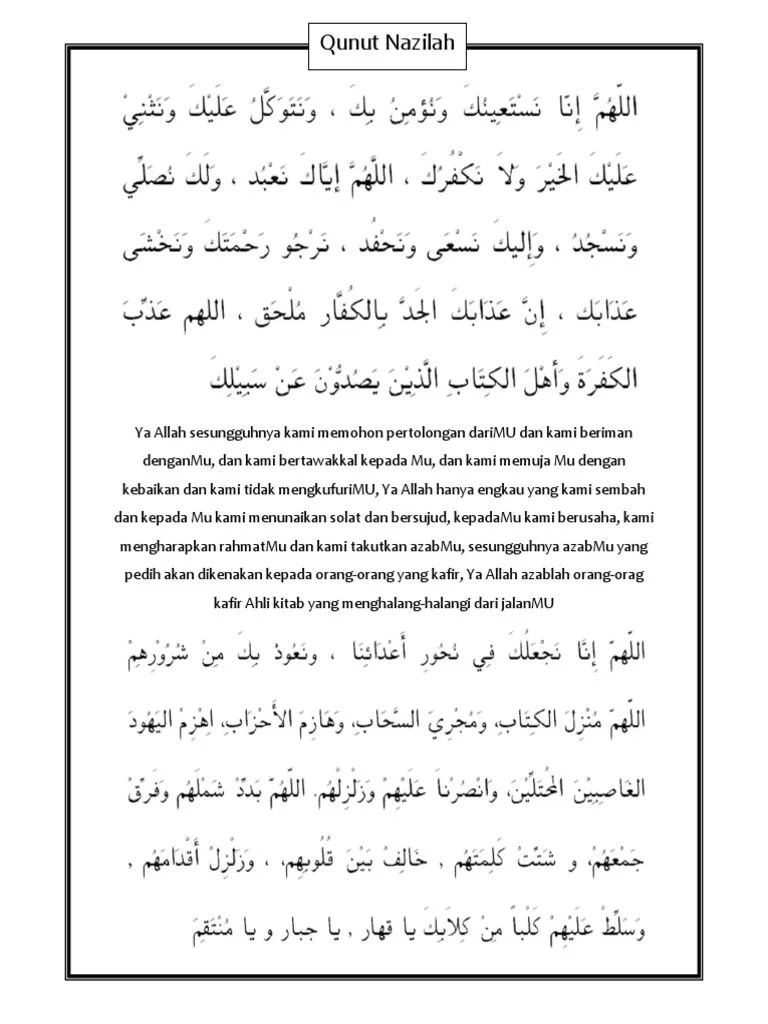 Qunut Nazilah
اللَّهُمَّ إِنَّا نَسْتَعِينُكَ وَنُؤمِنُ بِكَ ، وَنَتَوَكَّلُ عَلَيْكَ وَنَثْنِيْ
عَلَيْكَ الخَيْرَ وَلاَ نَكْفُرُكَ ، اللَّهُمَّ إيَّاكَ نَعْبُد ، وَلَكَ نُصَلِّي
وَنَسْجُدُ ، وَإليكَ نَسْعَى وَنَحْفُد ، نَرْجُو رَحْمَتَكَ وَنَخْشَى
عَذَابَك ، إِنَّ عَذَابَكَ الجَدَّ بِالكُفَّار مُلْحَق ، اللهم عَذِّبَ
الكَفَرَةَ وَأهْلَ الكِتَابِ الَّذِيْنَ يَصُدُّوْنَ عَنْ سَبِيْلِكَ
Ya Allah sesungguhnya kami memohon pertolongan dariMU dan kami beriman
denganMu, dan kami bertawakkal kepada Mu, dan kami memuja Mu dengan
kebaikan dan kami tidak mengkufuriMU, Ya Allah hanya engkau yang kami sembah
dan kepada Mu kami menunaikan solat dan bersujud, kepadaMu kami berusaha, kami
mengharapkan rahmatMu dan kami takutkan azabMu, sesungguhnya azabMu yang
pedih akan dikenakan kepada orang-orang yang kafir, Ya Allah azablah orang-orag
kafir Ahli kitab yang menghalang-halangi dari jalanMU
اللّهمّ إِنَّا نَجْعَلُكَ فِي نُحُورِ أَعْدَائِنَا ، ونَعُوذُ بِكَ مِنْ شُرُوْرِهِمْ
اللّهمّ مُنْزِلَ الكِتَاب، وَمُجْرِيَ السَّحَاب، وَهَازِمَ الأَحْزَاب، اِهْزِمْ اليَهُودَ
الغَاصِبِيْنَ المُحْتَلِّيْنَ، وَانْصُرْنَا عَلَيْهِمْ وَزَلْزِلْهُم. اللّهُمّ بَدِّدْ شَمْلَهُم وَفَرِّقْ
جَمْعَهُمْ، و شَتِّتْ كَلِمَتَهُم , خَالِفْ بَيْنَ قُلُوبِهِم، ، وَزَلْزِلْ أَقْدَامَهُم ,
وَسَلِّطْ عَلَيْهِمْ كَلْباً مِنْ كِلاَبِكَ يا قهار , يا جبار و يا مُنْتَقِمَ